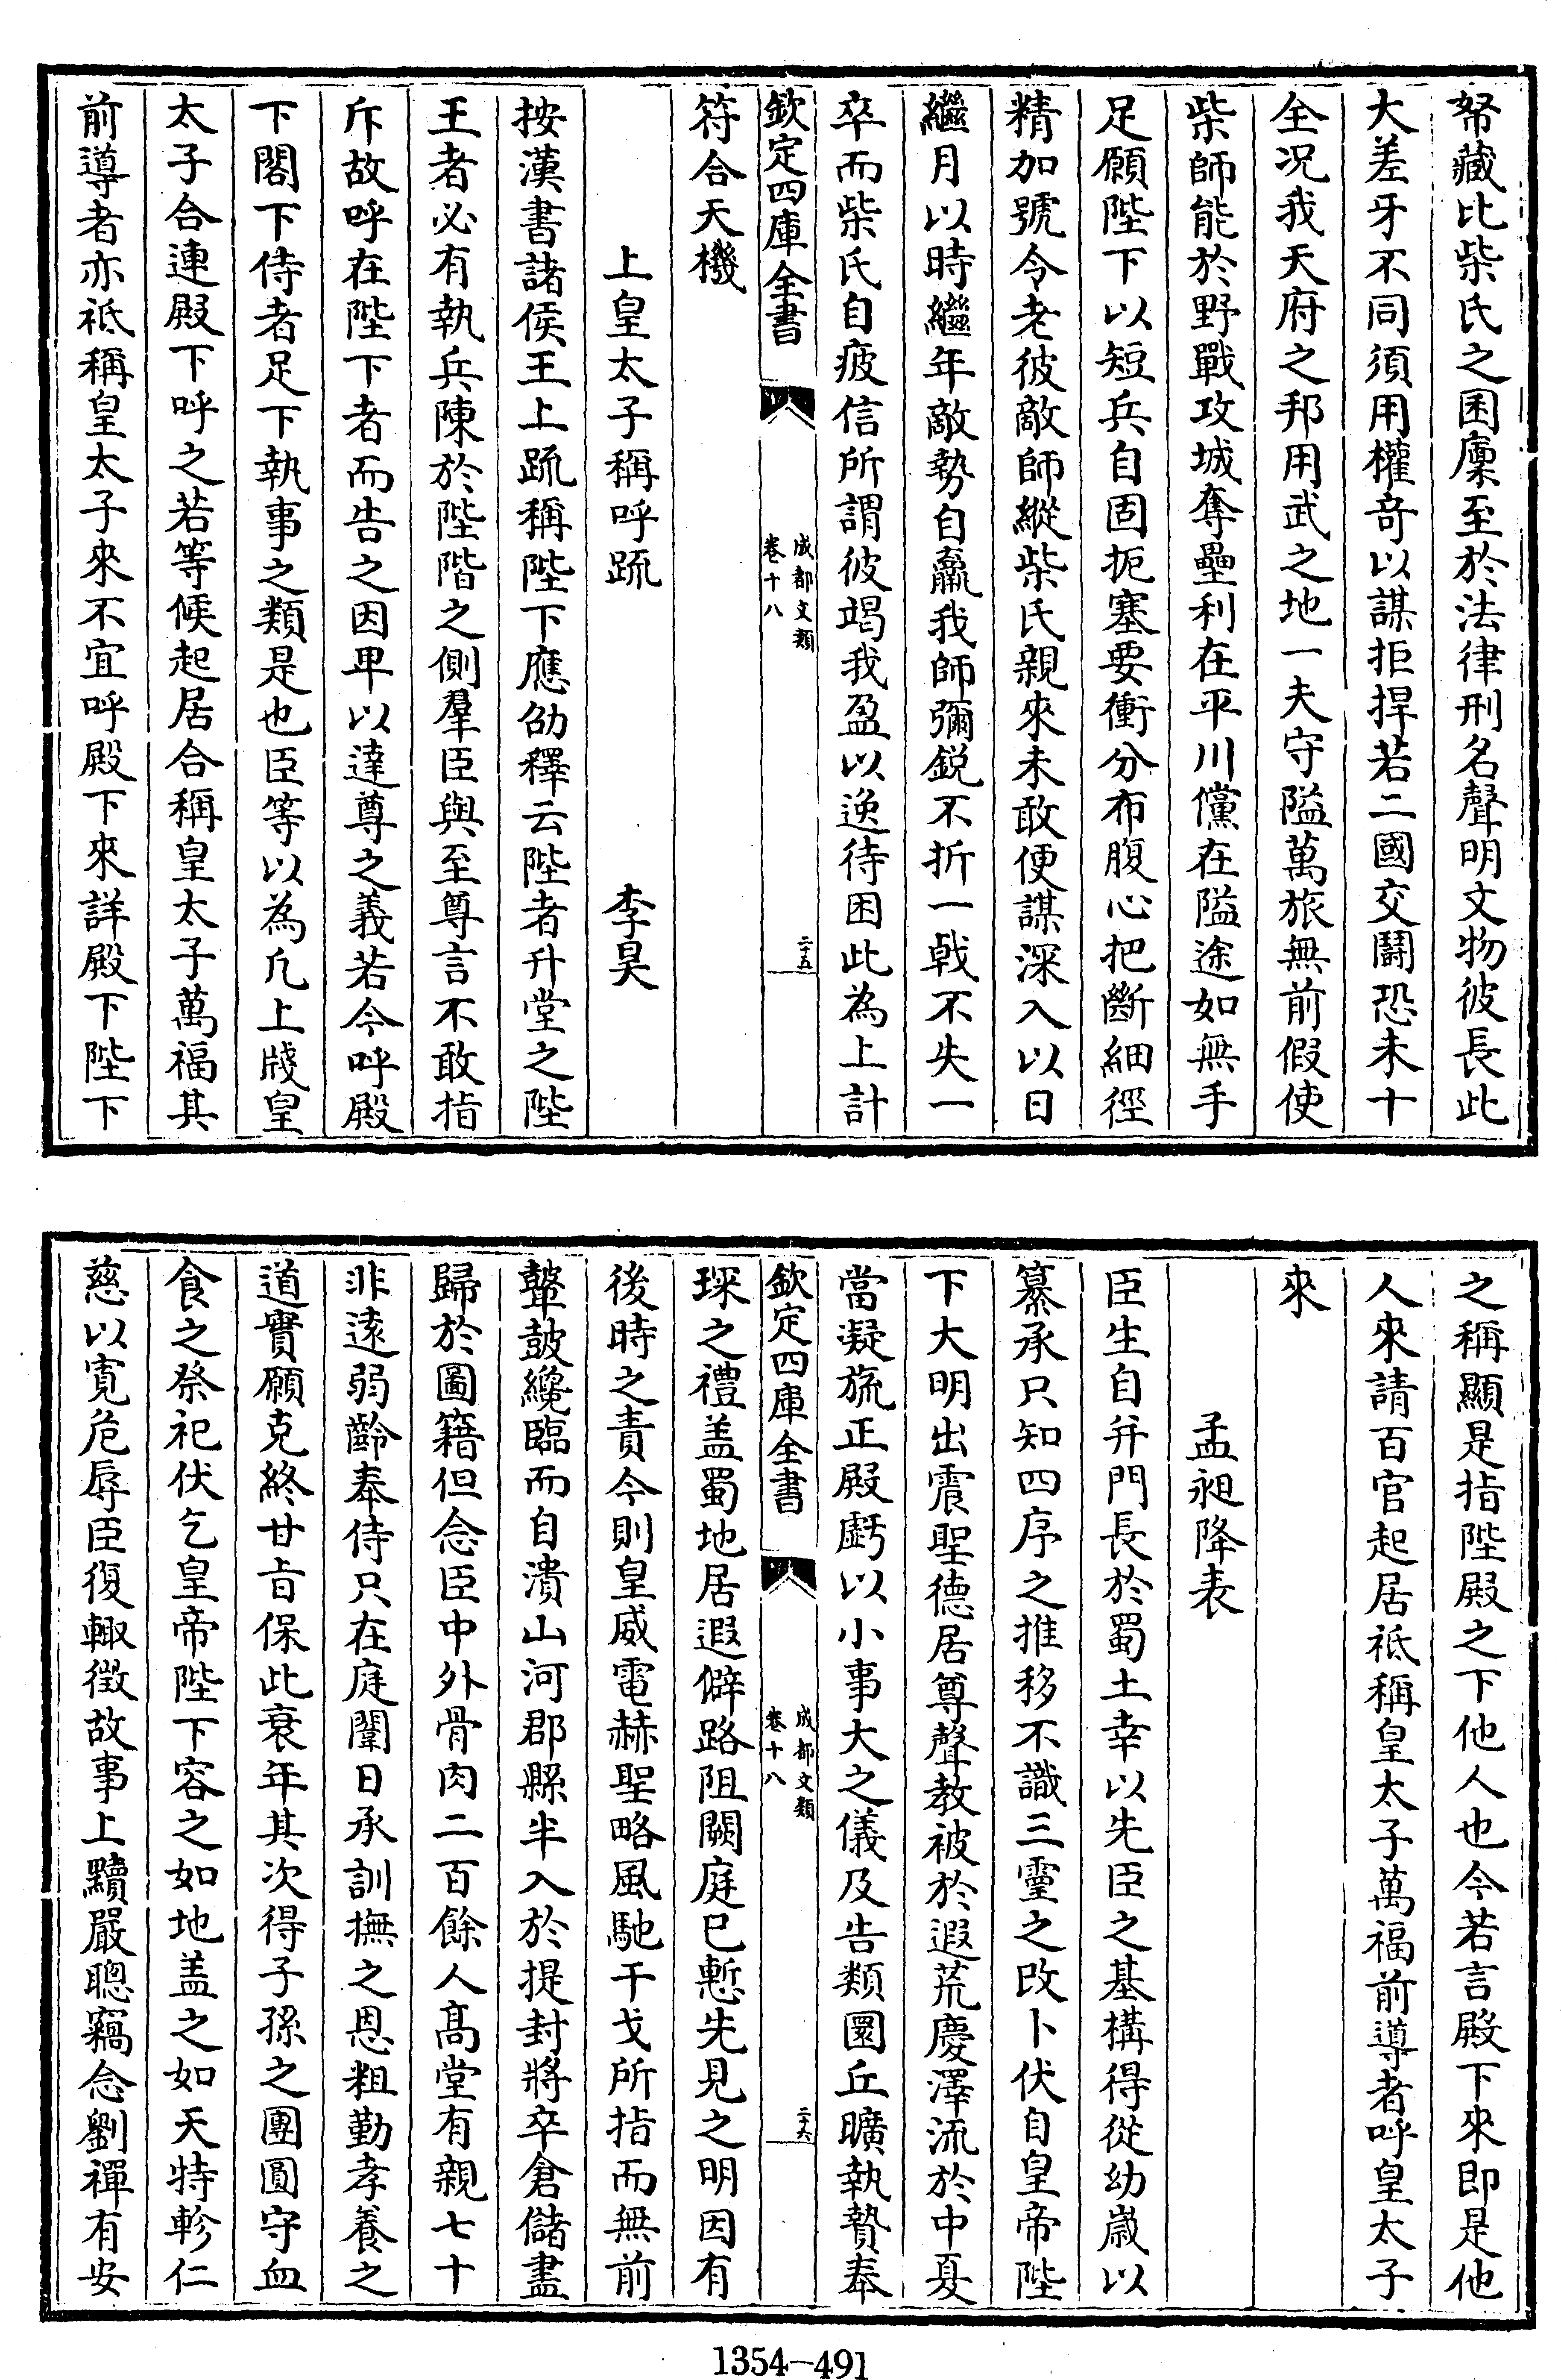 帑藏比柴氏之囷廩至於法律刑名聲明文物彼長此
大差牙不同須用權奇以謀拒捍若二國交鬬恐未十
全况我天府之邦用武之地一夫守隘萬旅無前假使
柴師能於野戰攻城奪壘利在平川儻在隘途如無手
足願陛下以短兵自固扼塞要衝分布腹心把斷細徑
精加號令老彼敵師縱柴氏親來未敢便謀深入以日
繼月以時繼年敵勢自羸我師彌鋭不折一戟不失一
卒而柴氏自疲信所謂彼竭我盈以逸待困此為上計
欽定四庫全書
成都文類
卷十八
二十五
符合天機
上皇太子稱呼疏 李昊
按漢書諸侯王上疏稱陛下應劭釋云陛者升堂之陛
王者必有執兵陳於陛階之側羣臣與至尊言不敢指
斥故呼在陛下者而告之因卑以達尊之義若今呼殿
下閣下侍者足下執事之類是也臣等以為凡上牋皇
太子合連殿下呼之若等候起居合稱皇太子萬福其
前導者亦祗稱皇太子來不宜呼殿下來詳殿下陛下
之稱顯是指陛殿之下他人也今若言殿下來即是他
人來請百官起居祗稱皇太子萬福前導者呼皇太子
來
孟昶降表
臣生自并門長於蜀土幸以先臣之基構得從幼歲以
纂承只知四序之推移不識三靈之改卜伏自皇帝陛
下大明出震聖德居尊聲教被於遐荒慶澤流於中夏
當凝旒正殿虧以小事大之儀及告類圜丘曠執贄奉
欽定四庫全書
成都文類
卷十八
二十六
琛之禮盖蜀地居遐僻路阻闕庭已慙先見之明因有
後時之責今則皇威電赫聖略風馳干戈所指而無前
鼙鼓纔臨而自潰山河郡縣半入於提封將卒倉儲盡
歸於圖籍但念臣中外骨肉二百餘人髙堂有親七十
非遠弱齡奉侍只在庭闈日承訓撫之恩粗勤孝養之
道實願克終甘旨保此衰年其次得子孫之團圓守血
食之祭祀伏乞皇帝陛下容之如地盖之如天特軫仁
慈以寛危辱臣復輙徵故事上黷嚴聰竊念劉禪有安
1354-491